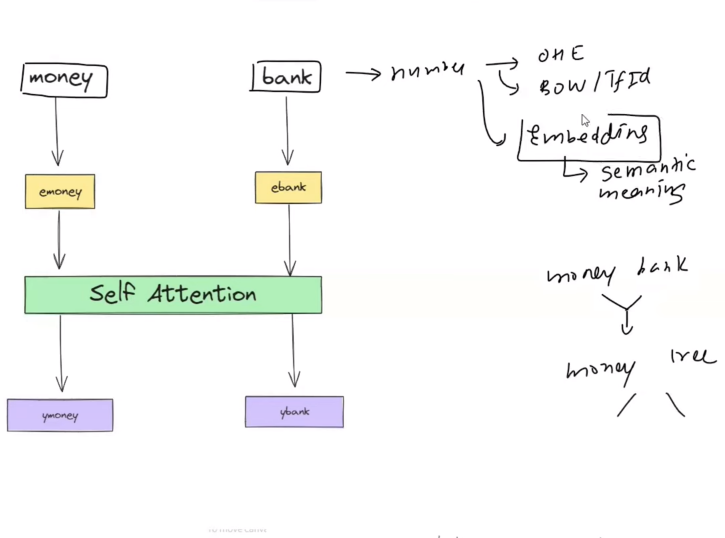 money
bank
number
OHE
BOW / TfId
Embedding
semantic
meaning
emoney
ebank
Self Attention
money bank
money tree
ymoney
ybank